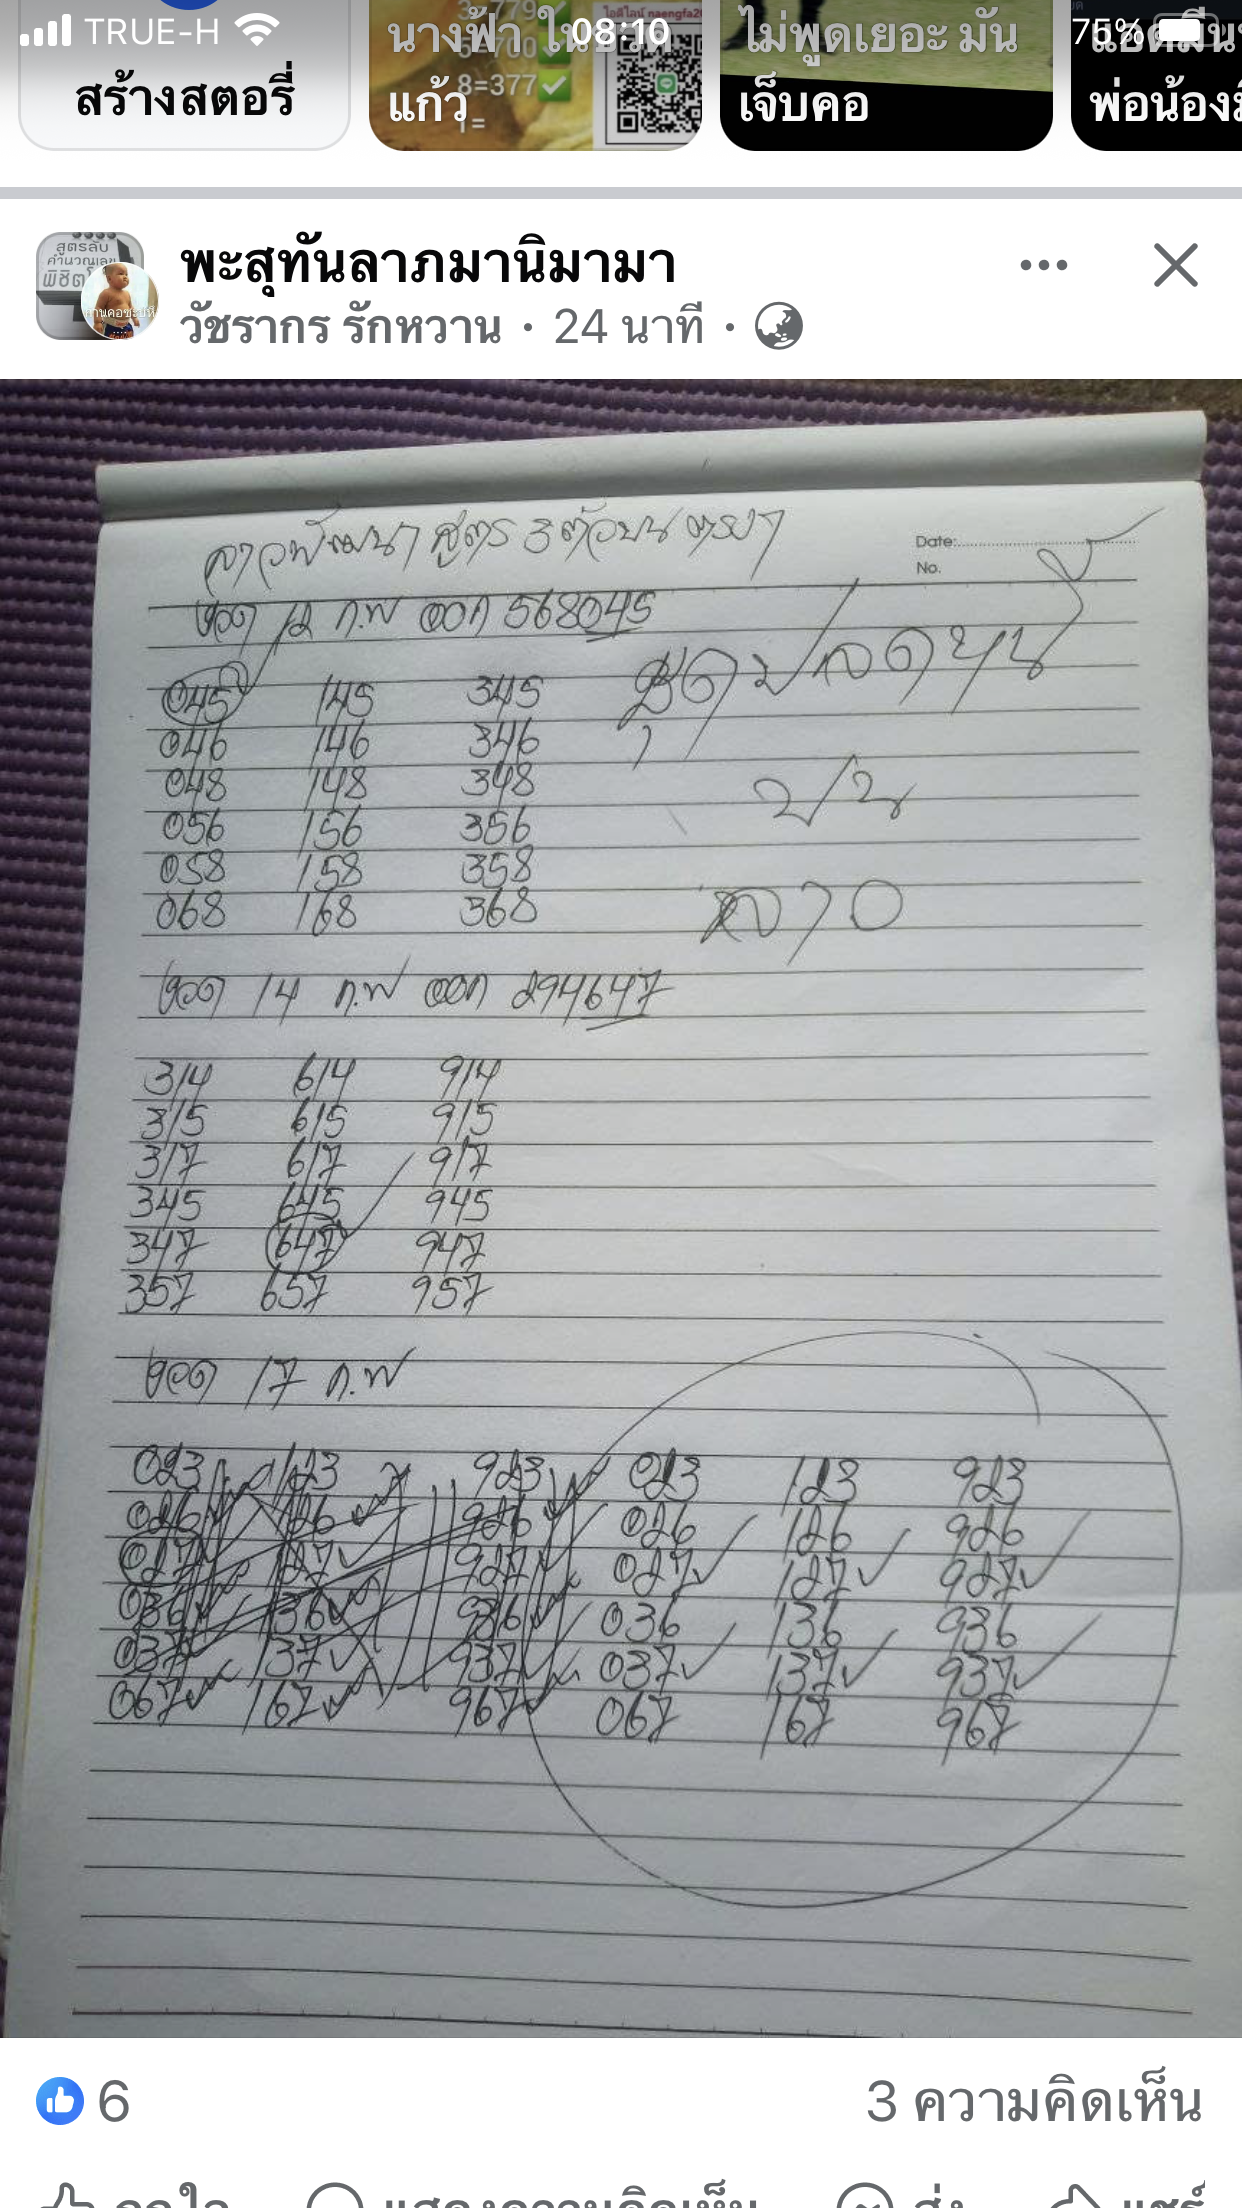 TRUE-H 08:10 75%
3=779✅
5=700✅
8=377✅
1=
ไอดีไลน์
สร้างสตอรี่
นางฟ้า
แก้ว
ไม่พูดเยอะ มัน
เจ็บคอ
พ่อน้อง
สูตรลับ
คำนวณเลข
พะสุทันลาภมานิมามา
วัชรากร รักหวาน · 24 นาที ·
ลาวพัฒนา สูตร 3 ตัวบน ตรงๆ
Date:
No.
งวด 12 ก.พ ออก 568045
045 145 345
ชุดปลดหนี้
046 146 346
048 148 348
บน
056 156 356
058 158 358
068 168 368
ลาว
งวด 14 ก.พ ออก 294647
314 614 914
315 615 915
317 617 917
345 645 945
347 647 947
357 657 957
งวด 17 ก.พ
023 123 923 023 123 923
026 126 926 026 126 926
027 127 927 027 127 927
036 136 936 036 136 936
037 137 937 037 137 937
067 167 967 067 167 967
6 3 ความคิดเห็น
ถูกใจ แสดงความคิดเห็น ส่ง แชร์